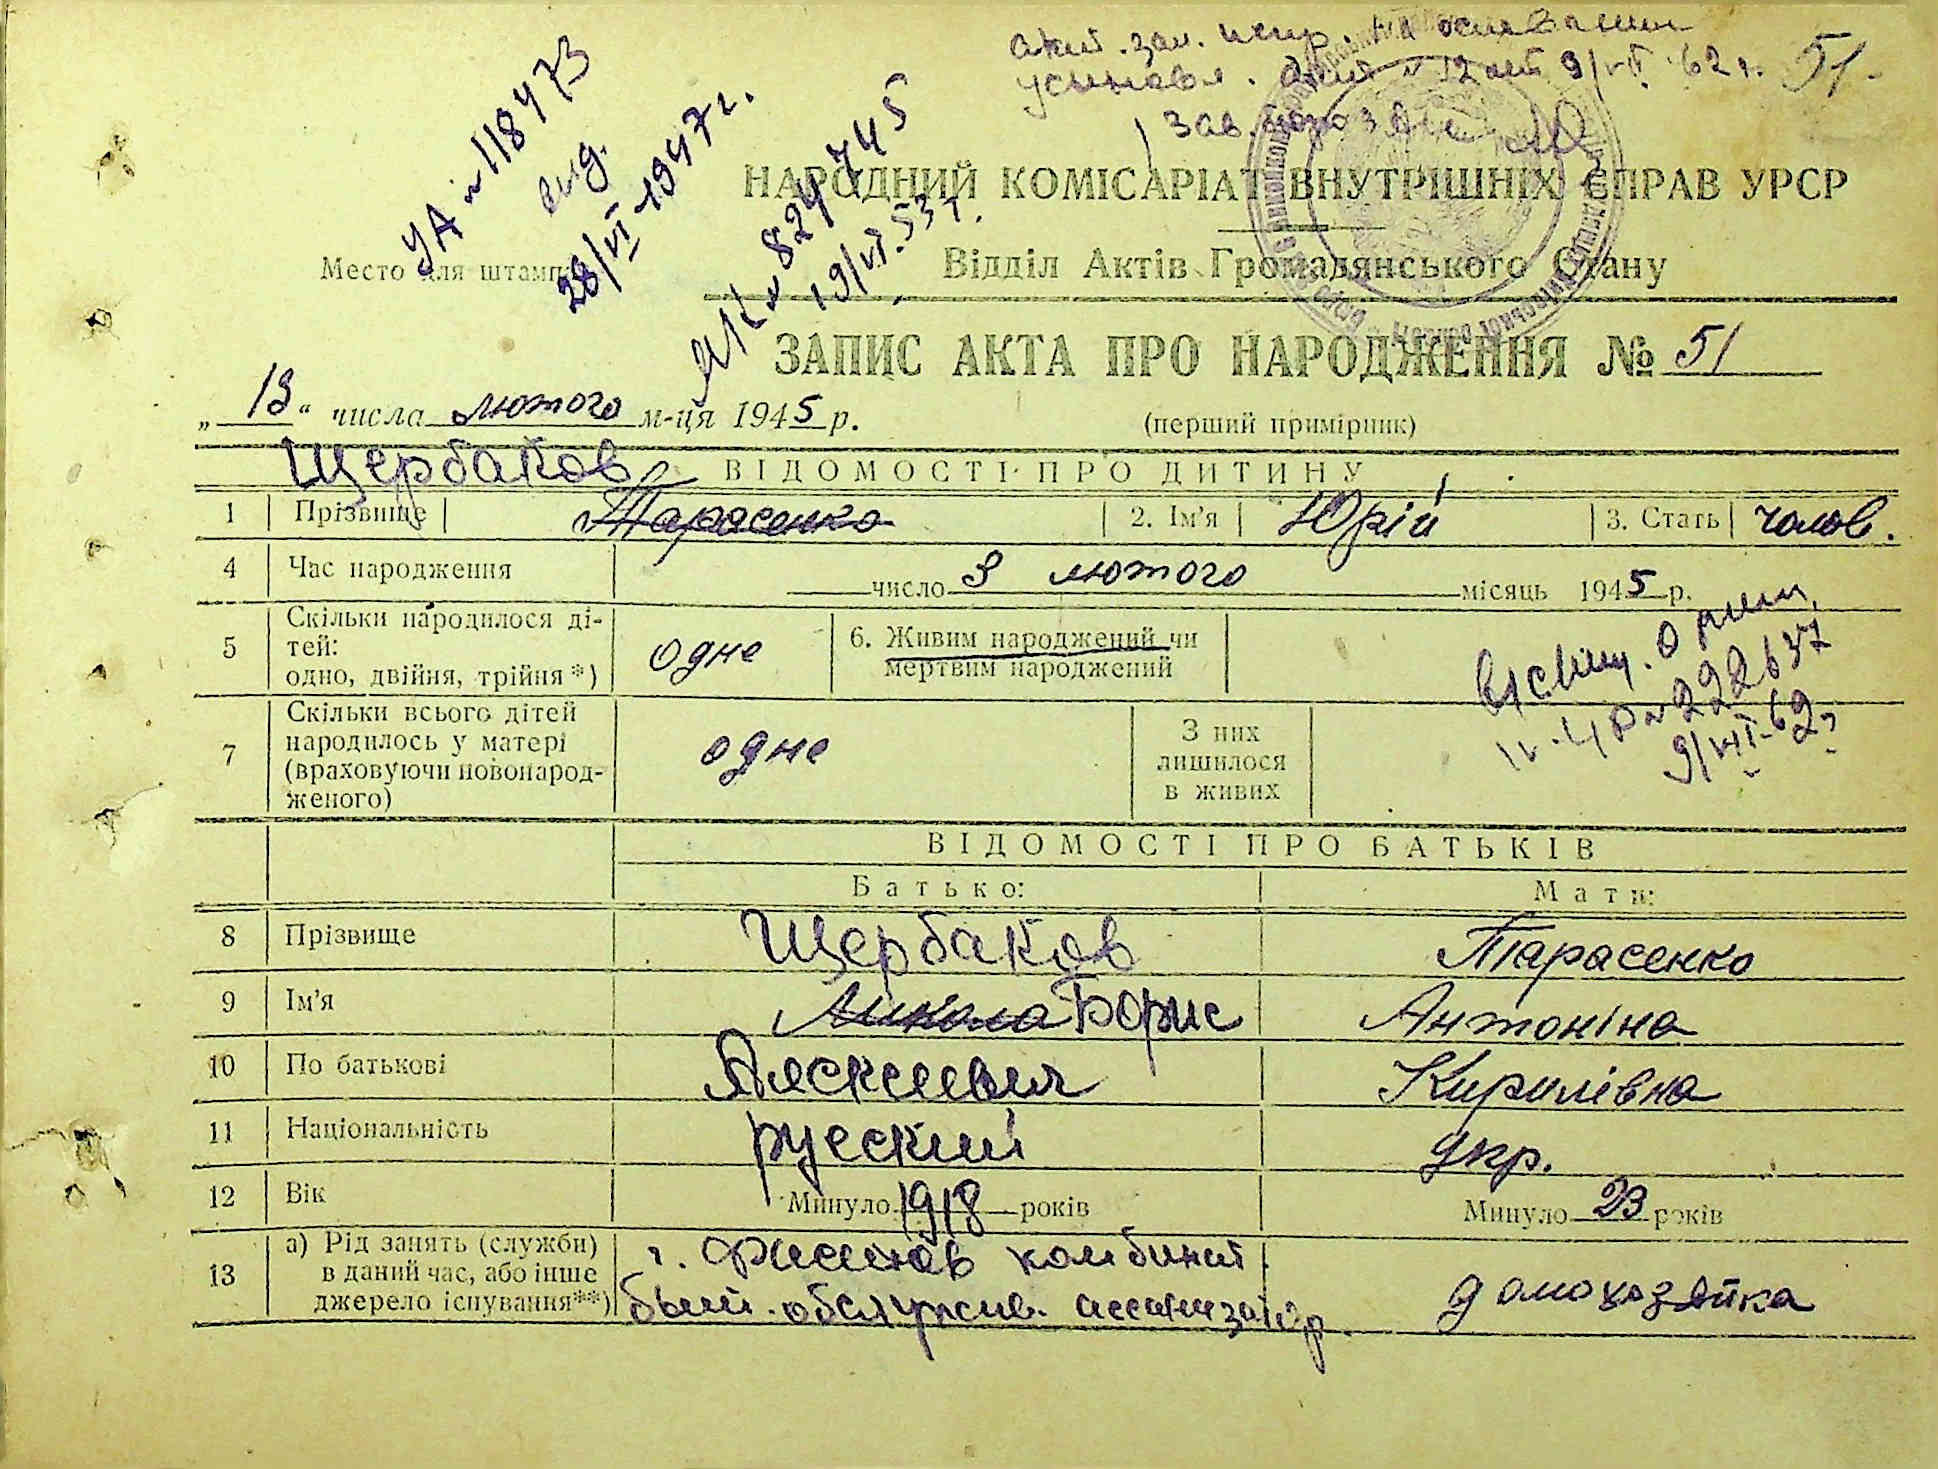 акт. зап. испр. на основании
усыновл. акт № 12 от 9/VII 62 г.
51.
зав. бюро загс
УА № 118473
вид.
28/VI 1947 г.
№ 824745
19/VI.53 г.
НАРОДНИЙ КОМІСАРІАТ ВНУТРІШНІХ СПРАВ УРСР
Место для штампа
Відділ Актів Громадянського Стану
ЗАПИС АКТА ПРО НАРОДЖЕННЯ № 51
„ 13 “ числа лютого м-ця 1945 р.
(перший примірник)
Щербаков
ВІДОМОСТІ ПРО ДИТИНУ
1 Прізвище Тарасенко 2. Ім'я Юрій 3. Стать чолов.
4 Час народження число 3 лютого місяць 1945 р.
5 Скільки народилося ді-
тей:
одно, двійня, трійня *)
одне
6. Живим народжений чи
мертвим народжений
№ 222637
9/VII-62 г
7 Скільки всього дітей
народилось у матері
(враховуючи новонарод-
женого)
одне
З них
лишилося
в живих
ВІДОМОСТІ ПРО БАТЬКІВ
Батько: Мати:
8 Прізвище Щербаков Тарасенко
9 Ім'я Микола Борис Антоніна
10 По батькові Алексеевич Кирилівна
11 Національність русский укр.
12 Вік Минуло 1918 років Минуло 23 років
13 а) Рід занять (служби)
в даний час, або інше
джерело існування**)
г. Фастов комбинат
быт. обслужив. ассенизатор.
домохозяйка